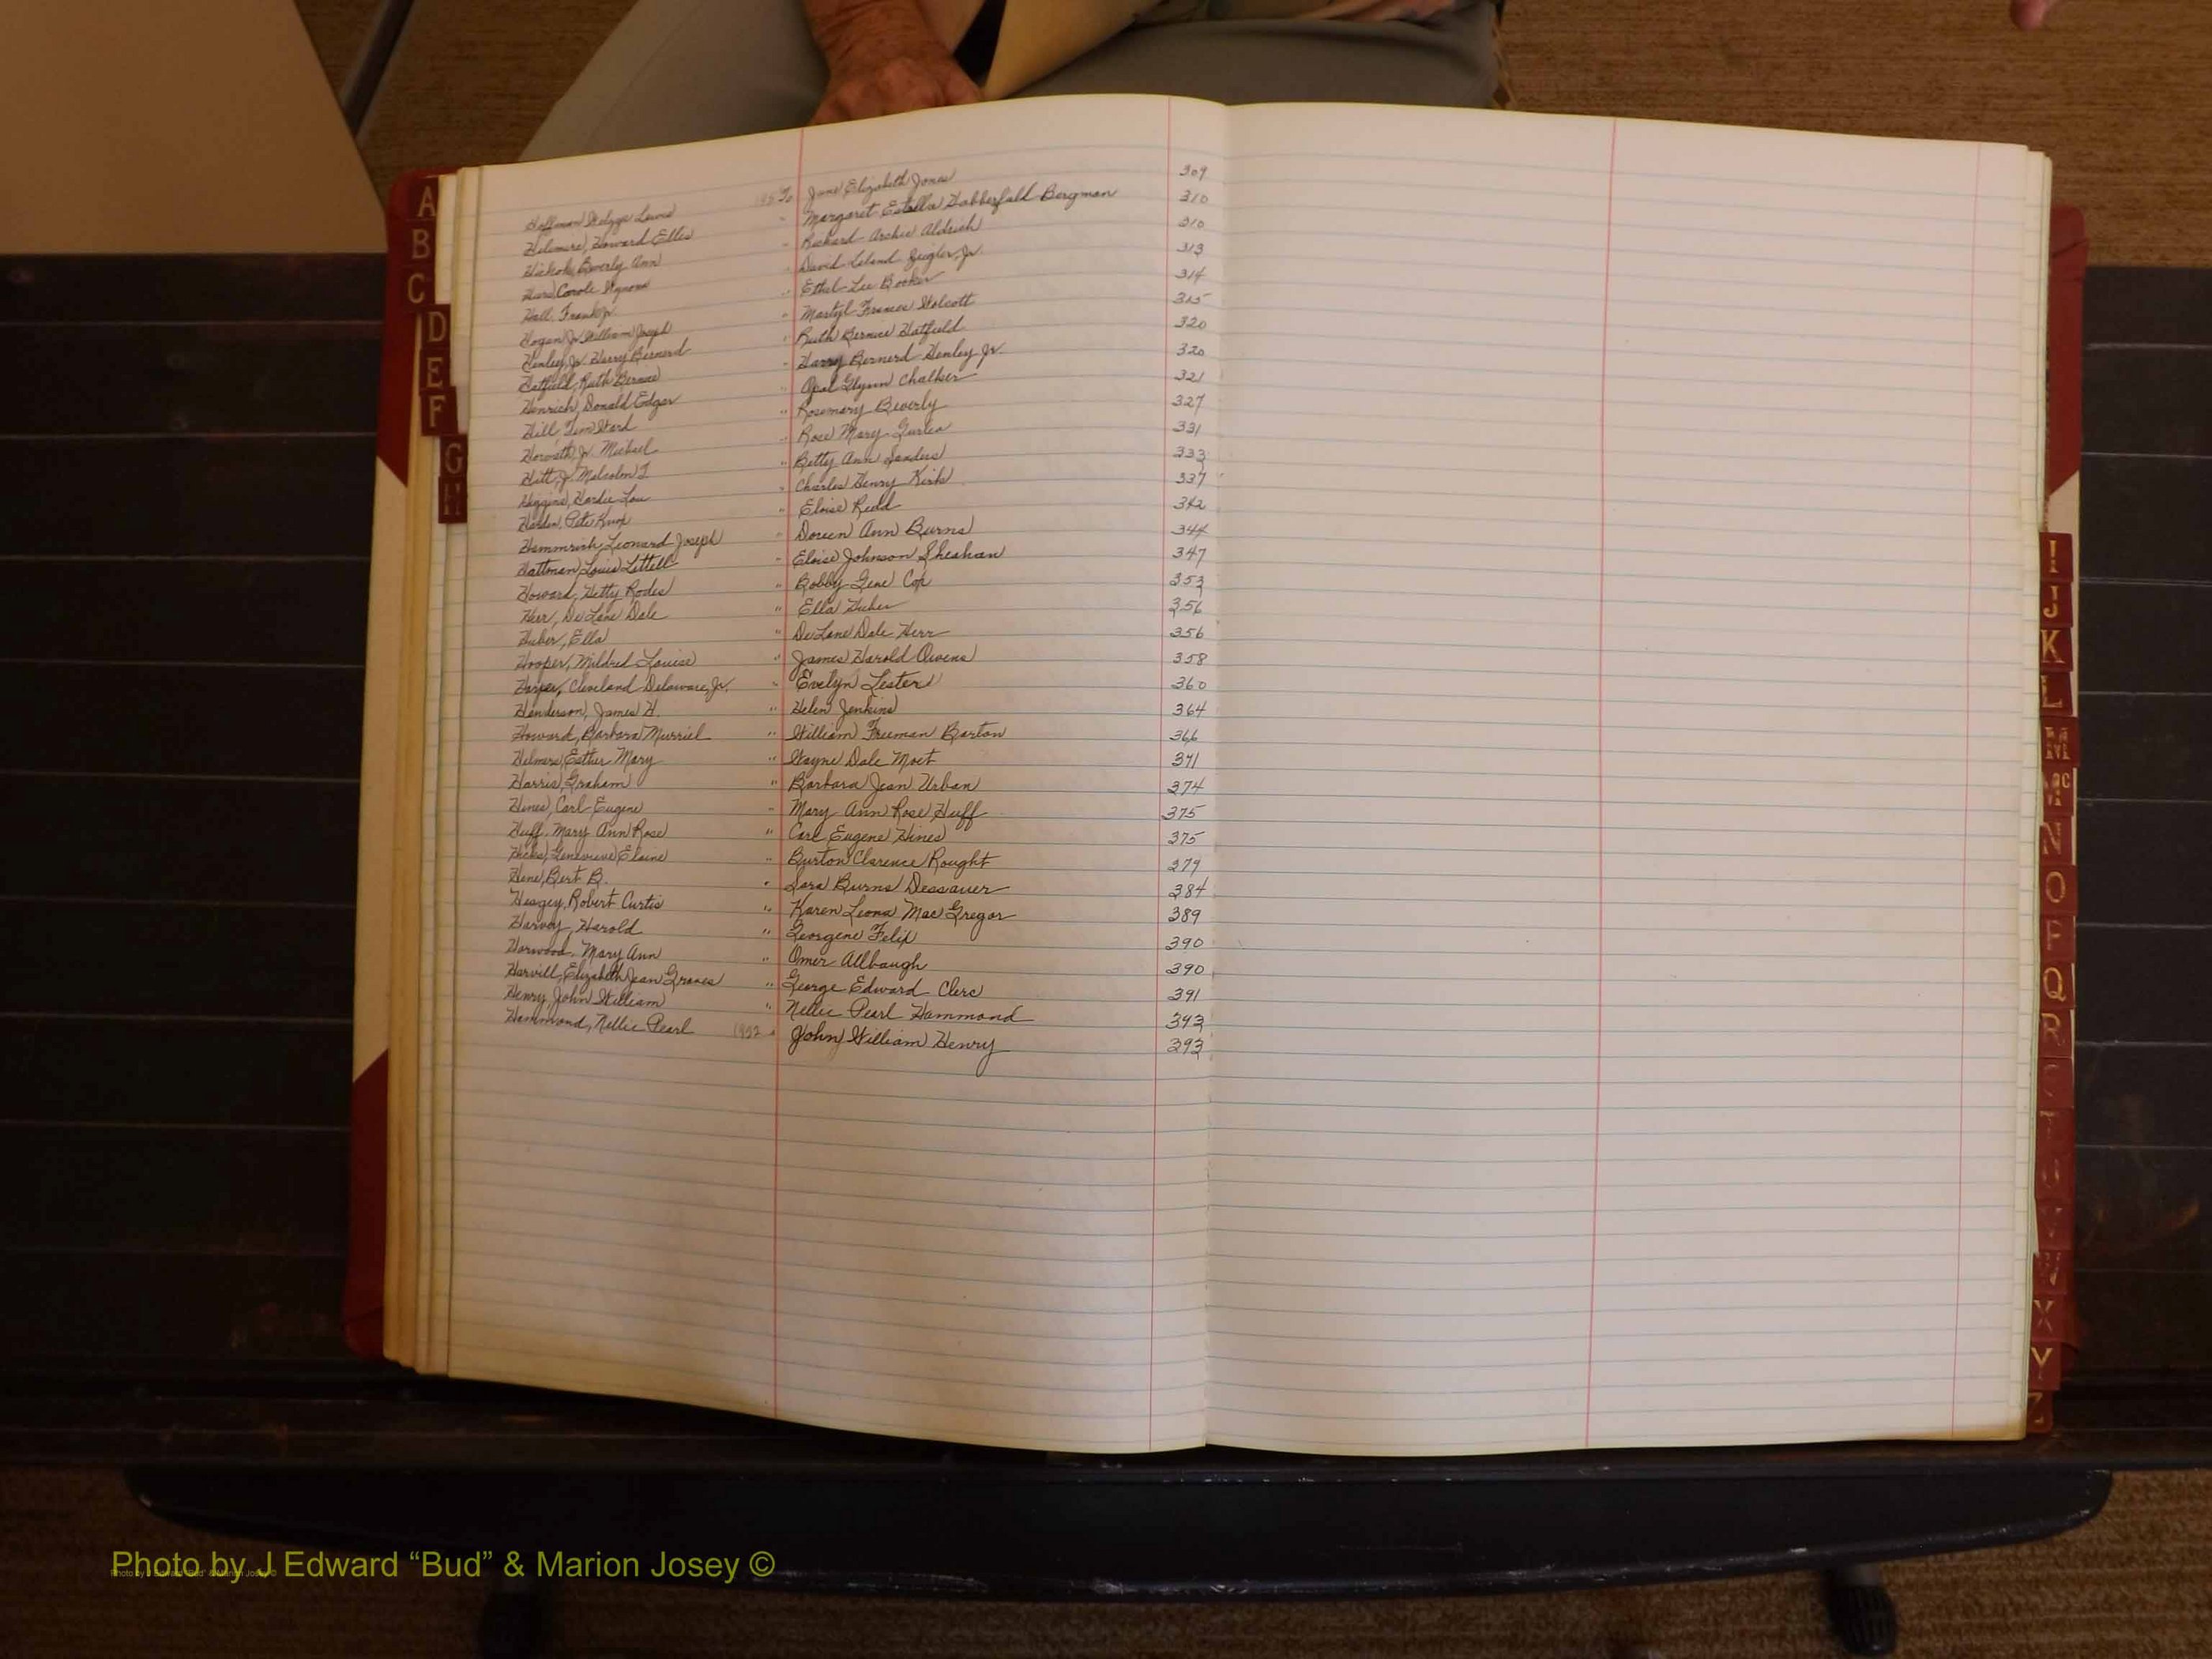 Hoffman, Lewis 195 To June Elizabeth Jones 309
Hilmers, Howard Ellis " Margaret Estella Habberfield Bergman 310
Hickok, Beverly Ann " Richard Archie Aldrich 310
Carole " David Leland Zeigler, Jr. 313
Hall, Frank Jr. " Ethel Lee Booker 314
Hogan, Jr. William Joseph " Frances Wolcott 315
Henley, Jr. Harry Bernerd " Ruth Bernice Hatfield 320
Hatfield, Ruth Bernice " Harry Bernerd Henley Jr. 320
Henrich, Donald Edgar " Opal Glynn Chalker 321
Hill, Tim Ward " Rosemary Beverly 327
Horvath, Jr. Michael " Rose Mary 331
Hitt, Jr. Malcolm T. " Betty Ann Sanders 333
Higgins, Hardie Lou " Charles Henry Kirk 337
Harden, Pete Knox " Eloise Redd 342
Hemmrich, Leonard Joseph " Doreen Ann Burns 344
Hattman, Louis Littell " Eloise Johnson Sheahan 347
Howard, Hetty Rodes " Bobby Gene Cox 353
Herr, DeLane Dale " Ella Huber 356
Huber, Ella " DeLane Dale Herr 356
Hooper, Mildred Louise " James Harold Owens 358
Harper, Cleveland Delaware, Jr. " Evelyn Lester 360
Henderson, James H. " Helen Jenkins 364
Howard, Barbara Murriel " William Freeman Barton 366
Helmers, Esther Mary " Wayne Dale Moet 371
Harris, Graham " Barbara Jean Urban 374
Hines, Carl Eugene " Mary Ann Rose Huff 375
Huff, Mary Ann Rose " Carl Eugene Hines 375
Hicks, Genevieve Elaine " Burton Clarence Rought 379
Hene, Bert B. " Sara Burns Dessauer 384
Heagey, Robert Curtis " Karen Leona Mac Gregor 389
Harvey, Harold " Georgene Felix 390
Harwood, Mary Ann " Omer Allbaugh 390
Harvill, Elizabeth Jean Graves " George Edward Clerc 391
Henry, John William " Nellie Pearl Hammond 393
Hammond, Nellie Pearl 1952 " John William Henry 393
A
B
C
D
E
F
G
H
I
J
K
L
M
Mc
N
O
P
Q
R
S
T
U
V
W
X
Y
Z
Photo by J Edward “Bud” & Marion Josey ©
Photo by J Edward “Bud” & Marion Josey ©